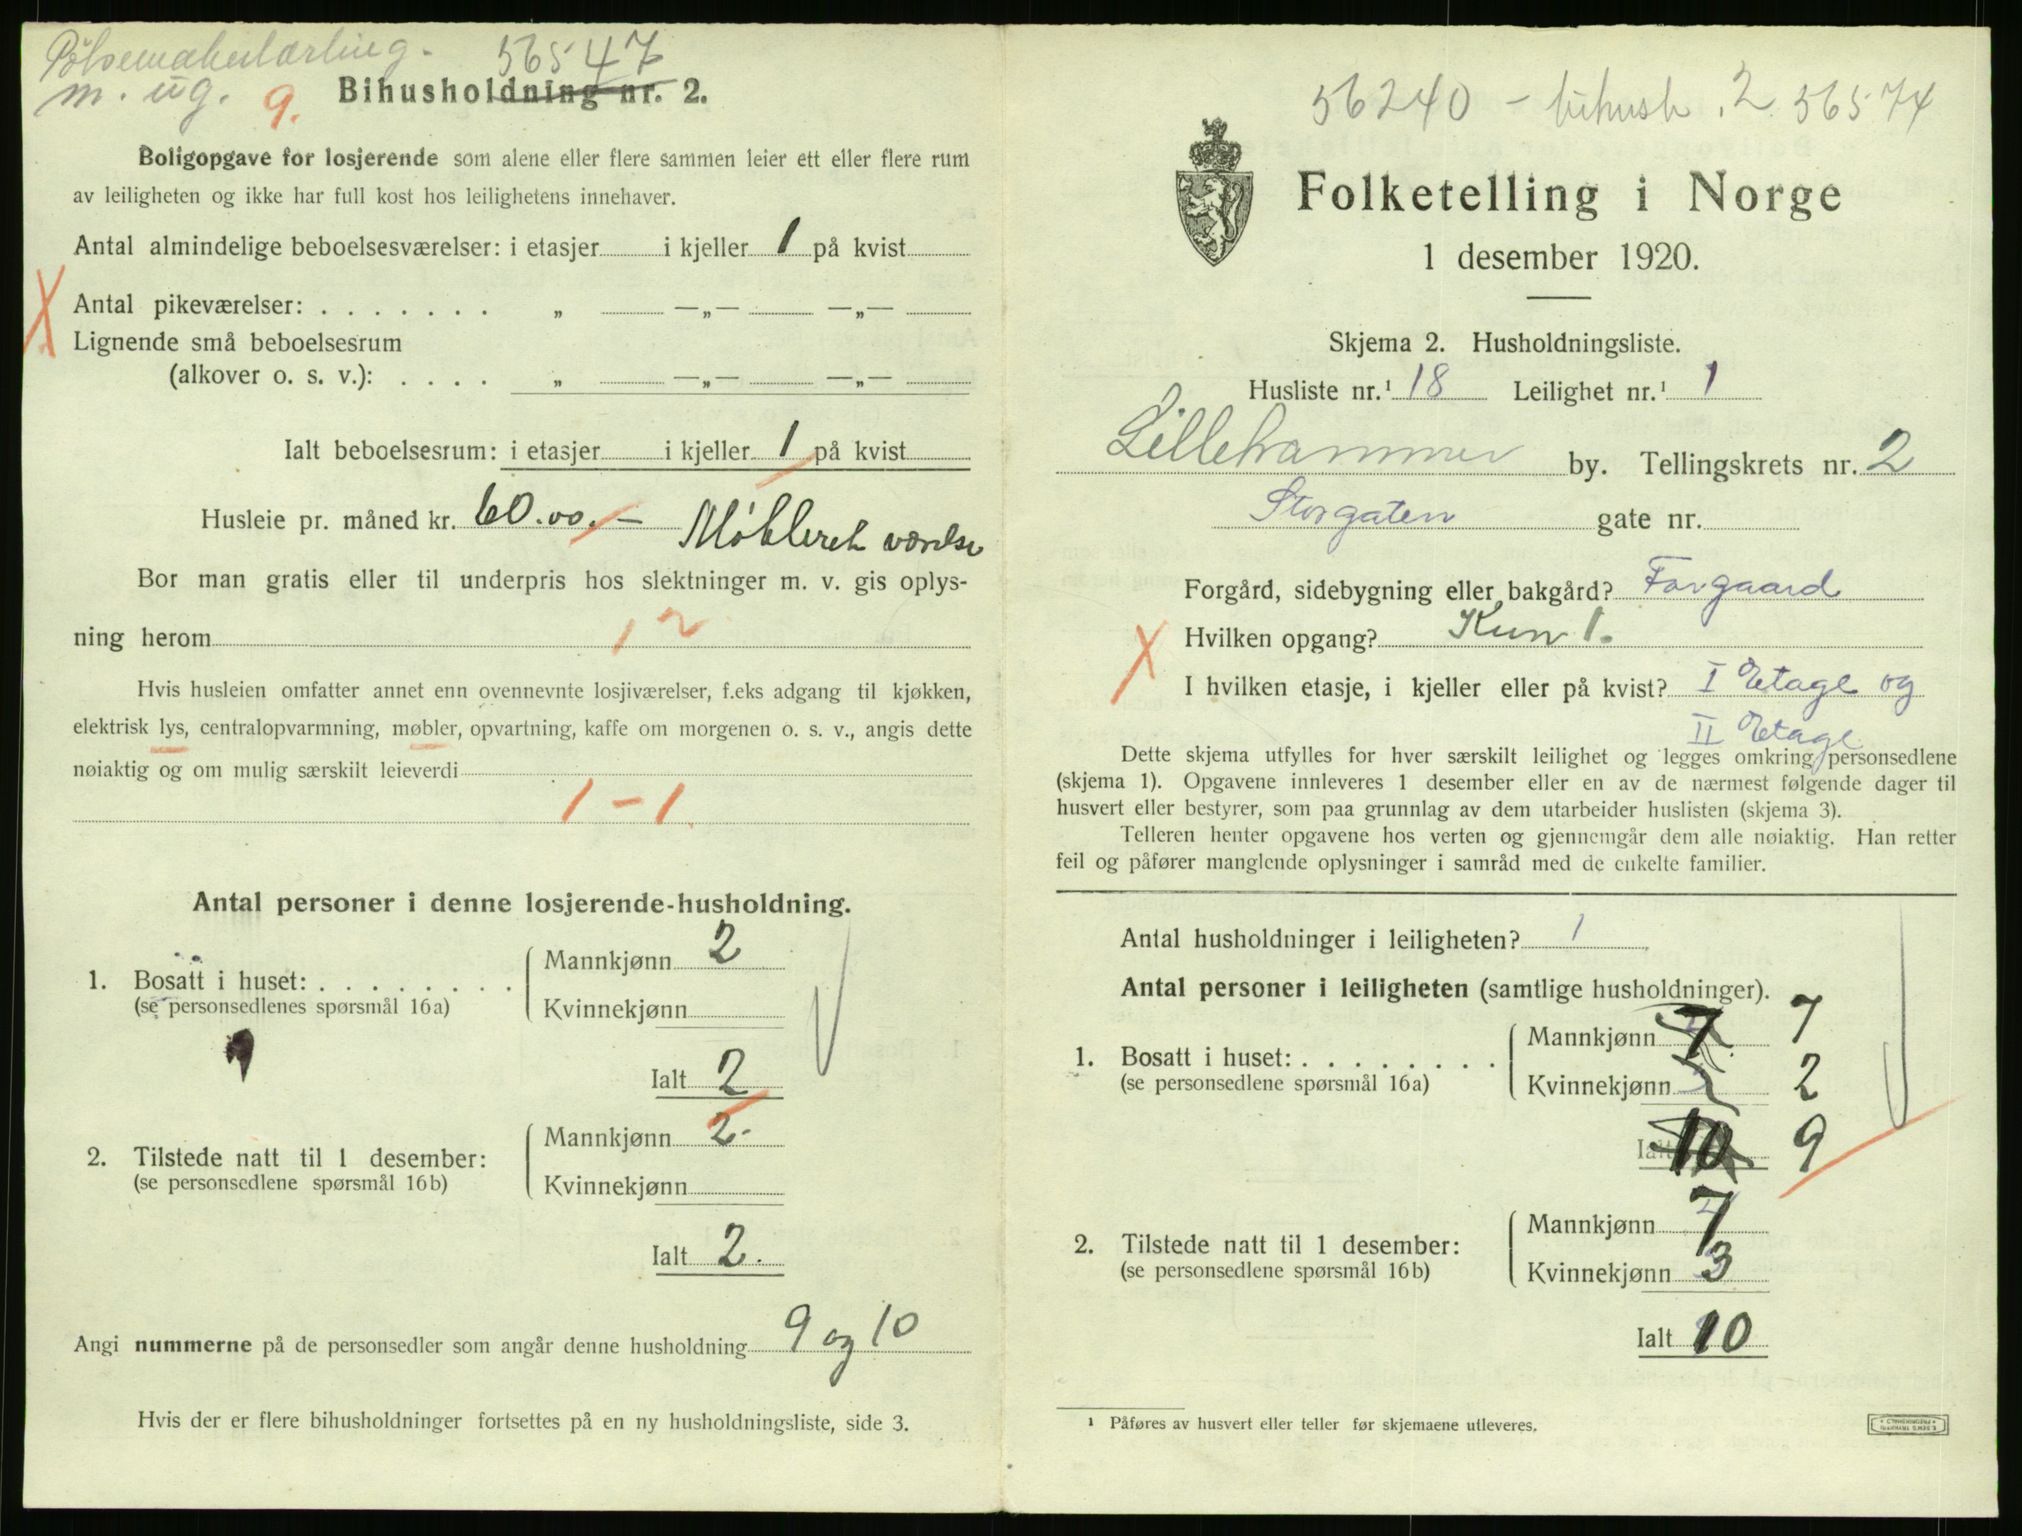 Pølsemakerlærling.
m. ug. 9.
56547
Bihusholdning nr. 2.
Boligopgave for losjerende som alene eller flere sammen leier ett eller flere rum
av leiligheten og ikke har full kost hos leilighetens innehaver.
Antal almindelige beboelsesværelser: i etasjer i kjeller 1 på kvist
X
Antal pikeværelser: . . . . . . . „ —„— —„—
Lignende små beboelsesrum
(alkover o. s. v.): . . . . „ —„— —„—
Ialt beboelsesrum: i etasjer i kjeller 1 på kvist
Husleie pr. måned kr. 60.00. — Møbleret værelse
Bor man gratis eller til underpris hos slektninger m. v. gis oplys-
ning herom
1 2
Hvis husleien omfatter annet enn ovennevnte losjiværelser, f.eks adgang til kjøkken,
elektrisk lys, centralopvarmning, møbler, opvartning, kaffe om morgenen o. s. v., angis dette
nøiaktig og om mulig særskilt leieverdi
1 - 1.
Antal personer i denne losjerende-husholdning.
1. Bosatt i huset: . . . . . . . . Mannkjønn 2
(se personsedlenes spørsmål 16a) Kvinnekjønn
Ialt 2
2. Tilstede natt til 1 desember: Mannkjønn 2-
(se personsedlene spørsmål 16b) Kvinnekjønn
Ialt 2.
Angi nummerne på de personsedler som angår denne husholdning 9 og 10
Hvis der er flere bihusholdninger fortsettes på en ny husholdningsliste, side 3.
56240 - bihush. 2 56574
Folketelling i Norge
1 desember 1920.
Skjema 2. Husholdningsliste.
Husliste nr.¹ 18 Leilighet nr.¹ 1
Lillehammer by. Tellingskrets nr. 2
Storgaten gate nr.
Forgård, sidebygning eller bakgård? Forgaard
X
Hvilken opgang? Kun 1.
I hvilken etasje, i kjeller eller på kvist? I Etage og
II Etage
Dette skjema utfylles for hver særskilt leilighet og legges omkring personsedlene
(skjema 1). Opgavene innleveres 1 desember eller en av de nærmest følgende dager til
husvert eller bestyrer, som paa grunnlag av dem utarbeider huslisten (skjema 3).
Telleren henter opgavene hos verten og gjennemgår dem alle nøiaktig. Han retter
feil og påfører manglende oplysninger i samråd med de enkelte familier.
Antal husholdninger i leiligheten? 1
Antal personer i leiligheten (samtlige husholdninger).
1. Bosatt i huset: . . . . . . . . Mannkjønn 7 7
(se personsedlene spørsmål 16a) Kvinnekjønn 2
Ialt 10 9
2. Tilstede natt til 1 desember: Mannkjønn 7
(se personsedlene spørsmål 16b) Kvinnekjønn 3
Ialt 10
¹ Påføres av husvert eller teller før skjemaene utleveres.